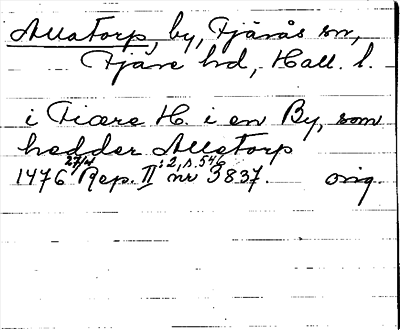 Allatorp, by, Fjärås sn,
Fjäre hd, Hall. l.
i Fiære H. i en By, som
hedder Alletorp
1476 27/4 Rep. II :2, s. 546 nr 3837. orig.